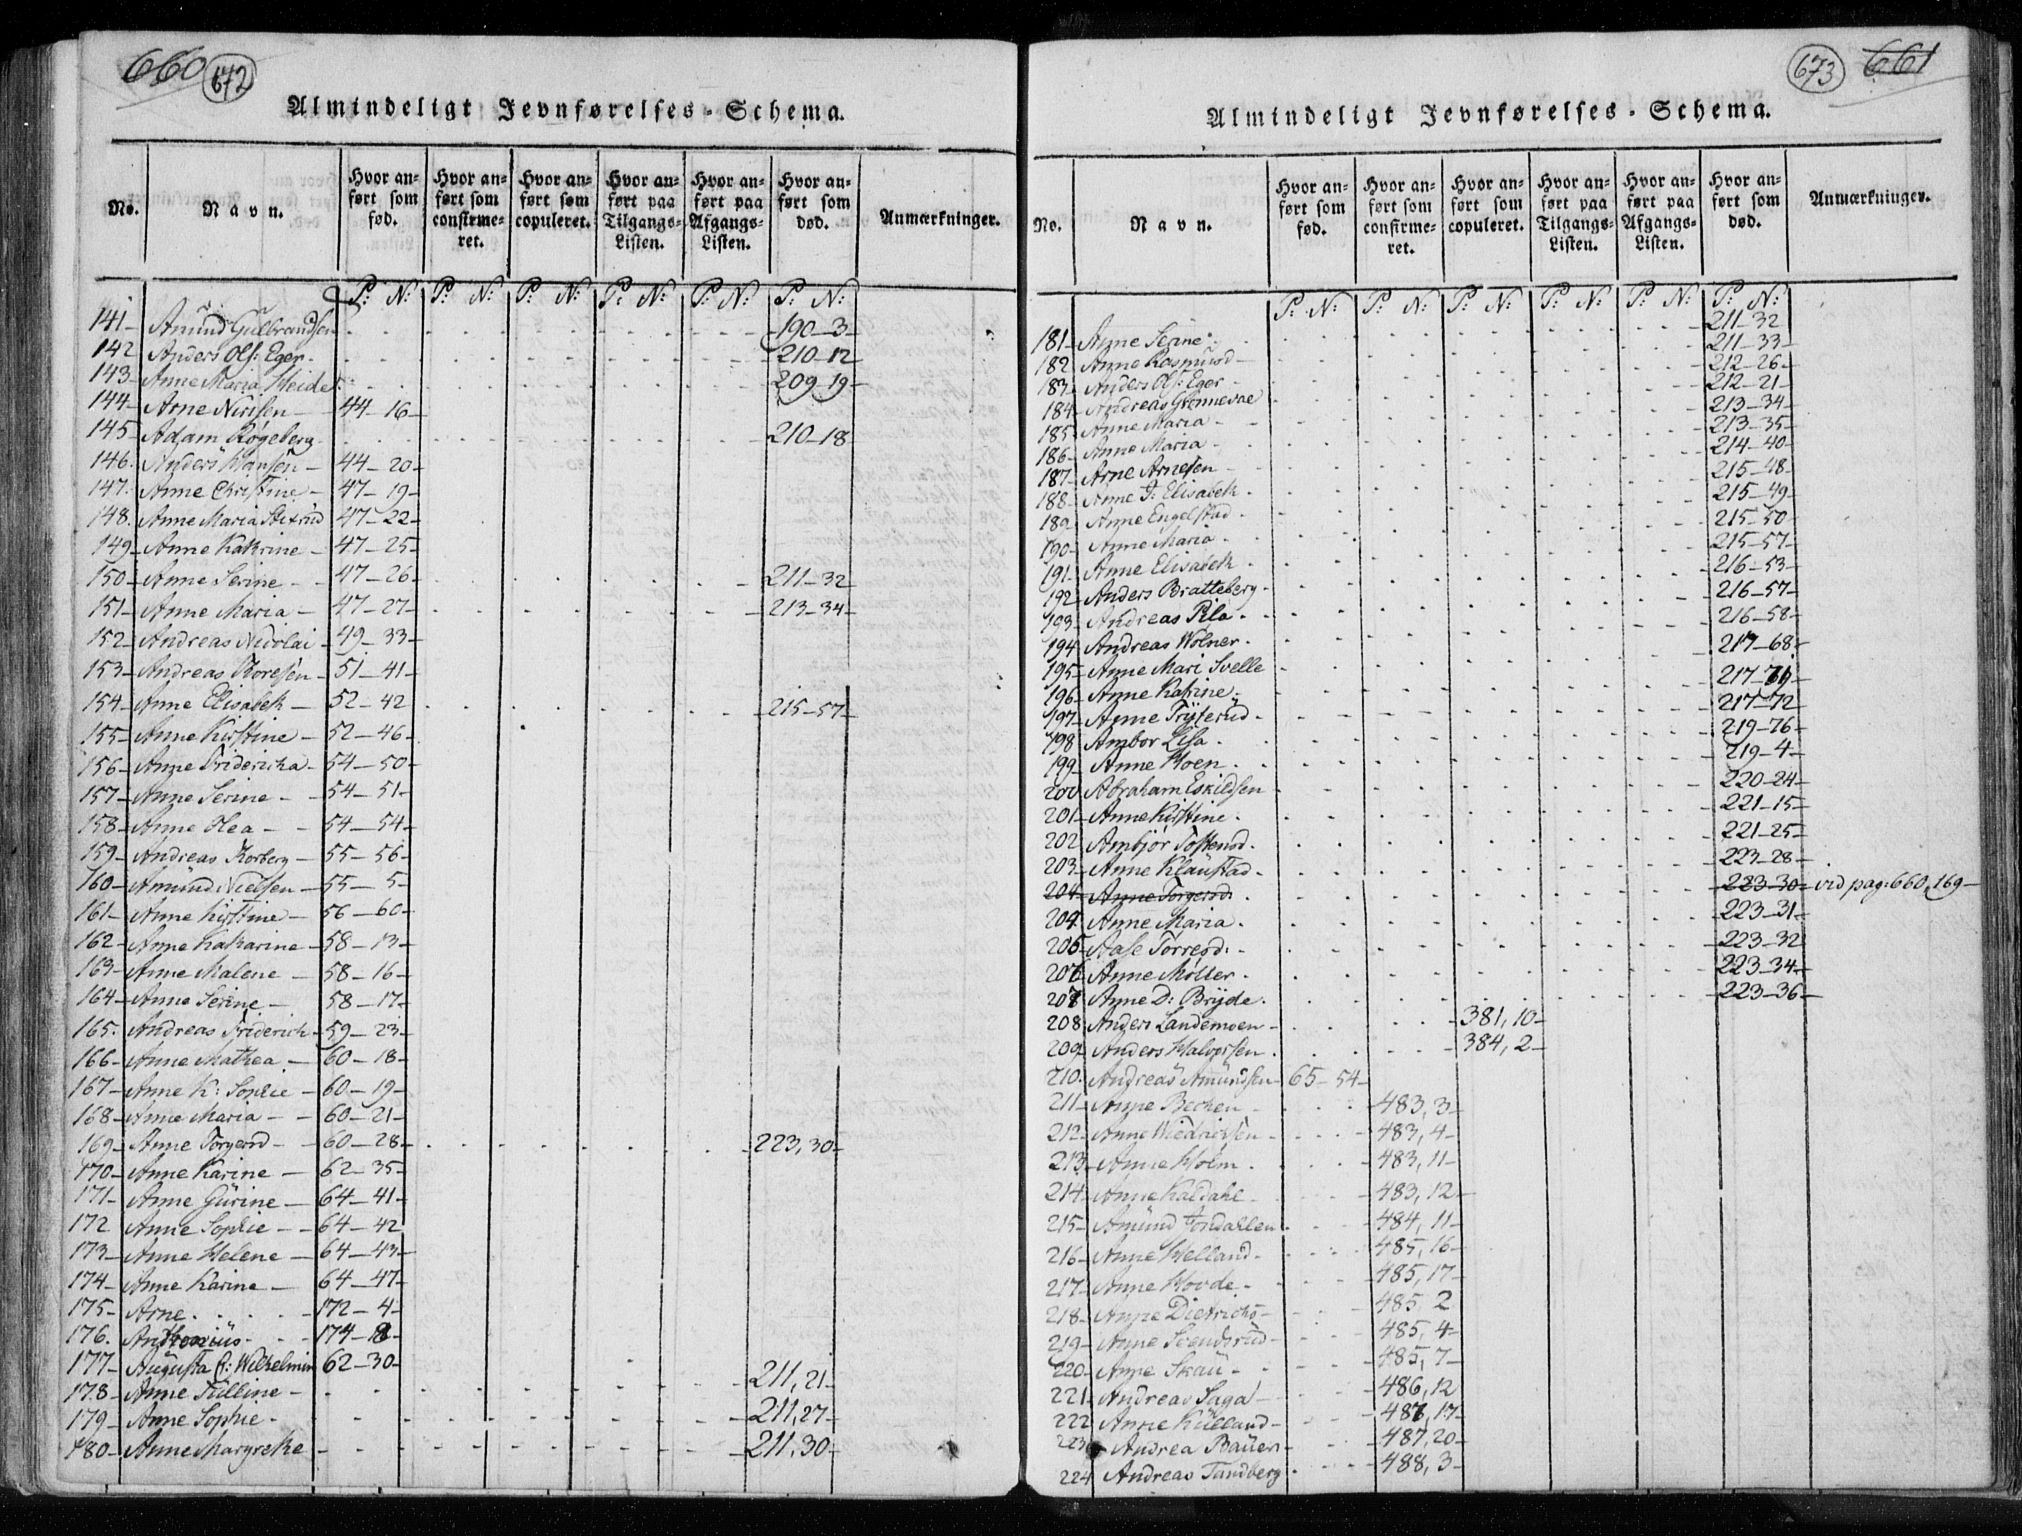 660 672
Almindeligt Jevnførelses-Schema.
No. Navn. Hvor anført som fød. Hvor anført som confirmeret. Hvor anført som copuleret. Hvor anført paa Tilgangs-Listen. Hvor anført paa Afgangs-Listen. Hvor anført som død. Anmærkninger.
P: N: P: N: P: N: P: N: P: N: P: N:
141- Amund Gulbrandsen 190-3-
142 Anders Ols: Eger- 210-12
143- Anne Maria Heide 209-19-
144- Arne Nirisen- 44-16-
145- Adam Røgeberg 210-18
146. Anders Hansen- 44-20-
147. Anne Christine- 47-19-
148. Anne Maria 47-22-
149- Anne Kathrine- 47-25-
150- Anne Serine- 47-26- 211-32
151- Anne Maria- 47-27- 213-34-
152- Andreas Nicolai- 49-33-
153- Andreas Thoresen- 51-41-
154- Anne Elisabeth- 52-42 215-57-
155- Anne Kirstine- 52-46-
156- Anne Fridericha- 54-50-
157- Anne Serine- 54-51-
158- Anne Thea- 54-54-
159- Andreas Korberg- 55-56-
160- Amund Nielsen- 55-5-
161- Anne Kirstine- 56-60-
162- Anne Katharine- 58-13-
163- Anne Malene- 58-16-
164- Anne Serine- 58-17-
165. Andreas Friderich- 59-23-
166- Anne Mathea- 60-18-
167- Anne K: Sophie- 60-19-
168- Anne Maria- 60-21-
169- Anne Torgersd- 60-28- 223,30-
170- Anne Karine- 62-35-
171- Anne Gurine- 64-41-
172 Anne Sophie- 64-42
173- Anne Helene- 64-43-
174- Anne Karine- 64-47-
175- Arne 172-4-
176. Anthonius 174-18-
177- Augusta C: Wilhelmin 62-30-
178- Anne Tulline- 211,21-
179- Anne Sophie- 211,27-
180- Anne Margrethe 211,30-
673 661
Almindeligt Jevnførelses-Schema.
No. Navn. Hvor anført som fød. Hvor anført som confirmeret. Hvor anført som copuleret. Hvor anført paa Tilgangs-Listen. Hvor anført paa Afgangs-Listen. Hvor anført som død. Anmærkninger.
P: N: P: N: P: N: P: N: P: N: P: N:
181- Anne Serine 211-32
182 Anne Rasmusd- 211-33-
183- Anders Ols: Eger- 212-26-
184- Andreas Grønnevae 212-21-
185- Anne Maria- 213-34-
186- Anne Maria- 213-35-
187- Arne Arnesen 214-40-
188- Anne I: Elisabeth. 215-48-
189- Anne Engelstad. 215-49-
190- Anne Maria. 215-50
191- Anne Elisabeth. 215-57-
192- Anders Bratteberg. 216-53-
193- Andreas Pila. 216-57-
194 Andreas Wolner. 216-58-
195- Anne Mari Svelle 217-68-
196- Anne Katrine. 217-71-
197- Anne Trÿterud. 217-72
198 Ambor Lisa. 219-76-
199- Anne Moen. 219-4-
200 Abraham Eskildsen 220-24-
201- Anne Kirstine. 221-15-
202 Ambjør Tostensd. 221-25-
203- Anne Klaustad. 223-28-
204 Anne Torgersd. 223-30- vid pag: 660, 169-
204 Anne Maria. 223-31-
205 Aase Torresd. 223-32
206 Anne Møller. 223-34-
207 Anne D: Brÿde. 223-36-
208 Anders Landemoen- 381,10-
209- Anders Halvorsen. 384,2-
210. Andreas Amundsen- 65-54-
211- Anne Bechen- 483,3-
212- Anne Wiedrichsen- 483,4-
213- Anne Holm. 483,11-
214- Anne Kaldahl- 483,12-
215- Amund Jordahlen. 484,11-
216- Anne Helland- 485,16-
217- Anne Hovde. 485,17-
218- Anne Dietrichs- 485,2
219- Anne Svendsrud- 485,4-
220- Anne Skau- 485,7-
221- Andreas Saga- 486,12
222 Anne Kulland- 487,17-
223 Andrea Bauer- 487,20-
224 Andreas Tandberg. 488,3-